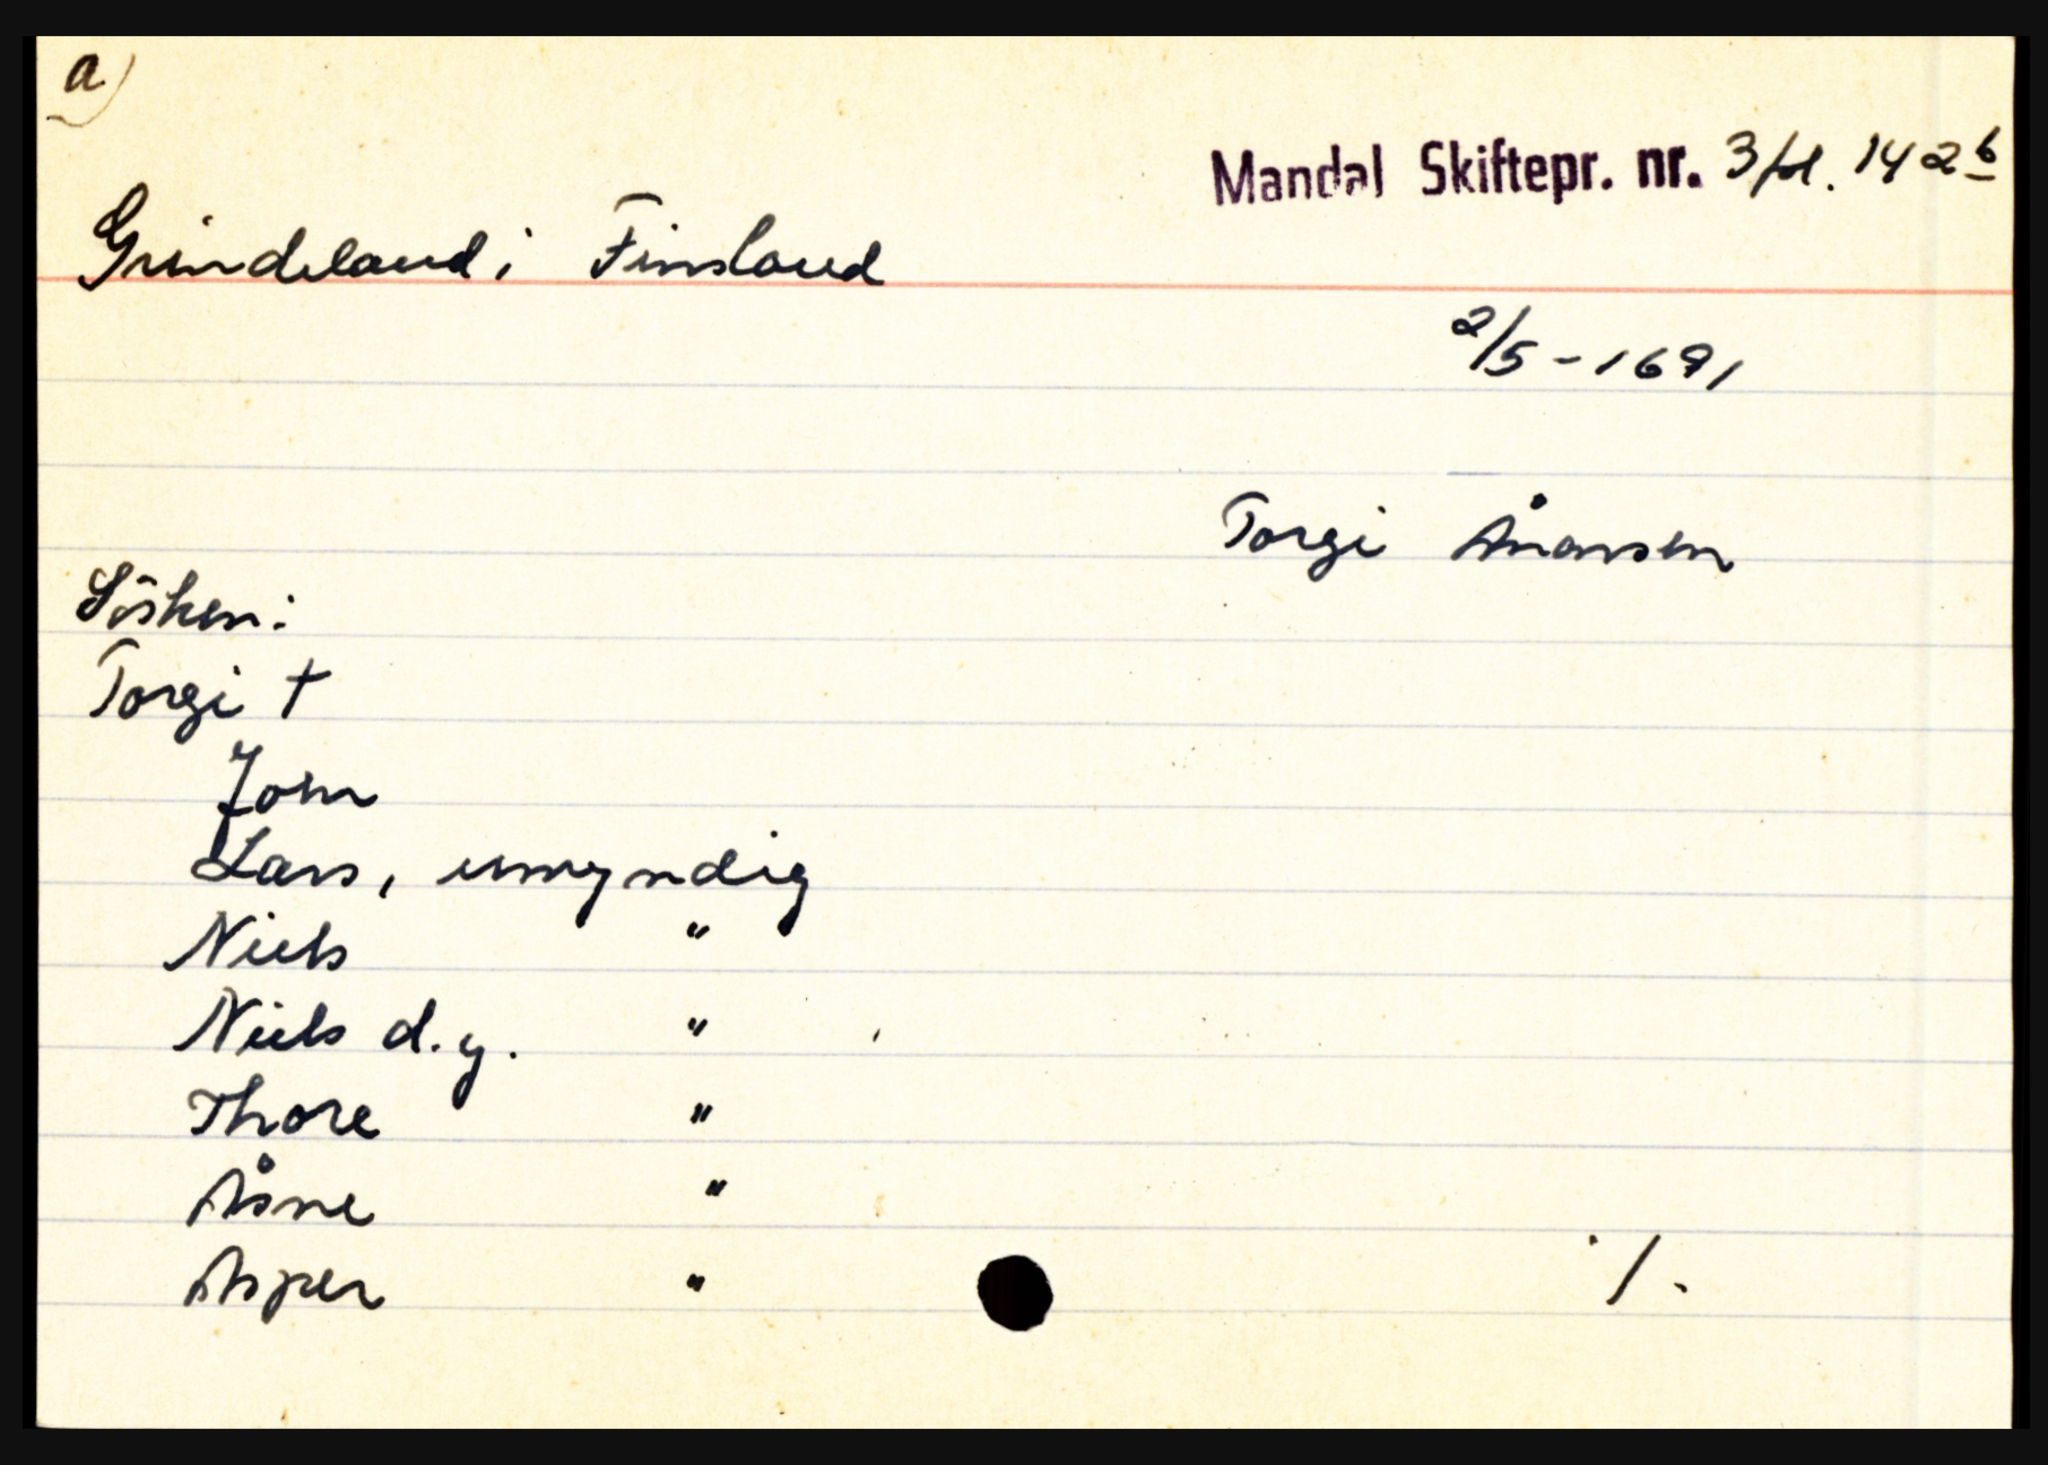 a)
Mandal Skiftepr. nr. 3 fol. 142b
Grindeland i Finsland
2/5 - 1691
Torgi Ånonsen
Søsken:
Torgi †
Jon
Lars, umyndig
Niels "
Niels d.y. "
Thore "
Åsne "
Asper "
·/.